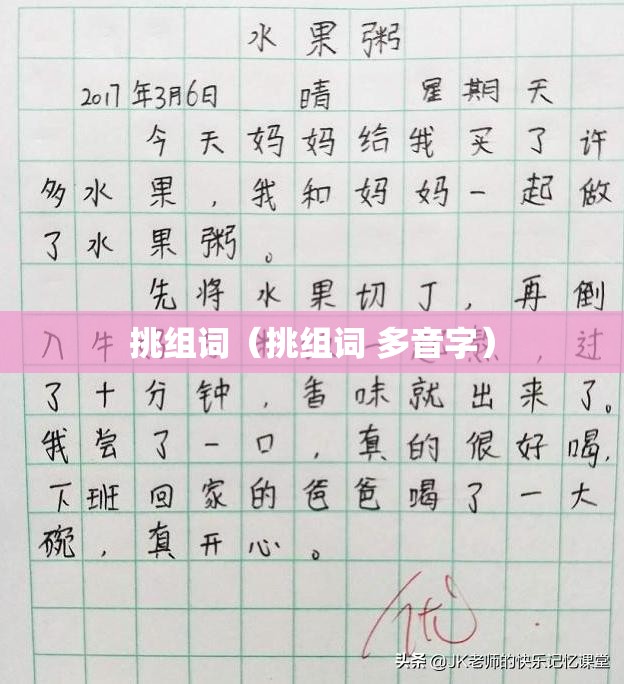 水果粥
2017年3月6日 晴 星期天
今天妈妈给我买了许
多水果，我和妈妈一起做
了水果粥。
先将水果切丁，再倒
入牛 一起 ，过
挑组词（挑组词 多音字）
了十分钟，香味就出来了。
我尝了一口，真的很好喝，
下班回家的爸爸喝了一大
碗，真开心。
优
头条 @JK老师的快乐记忆课堂